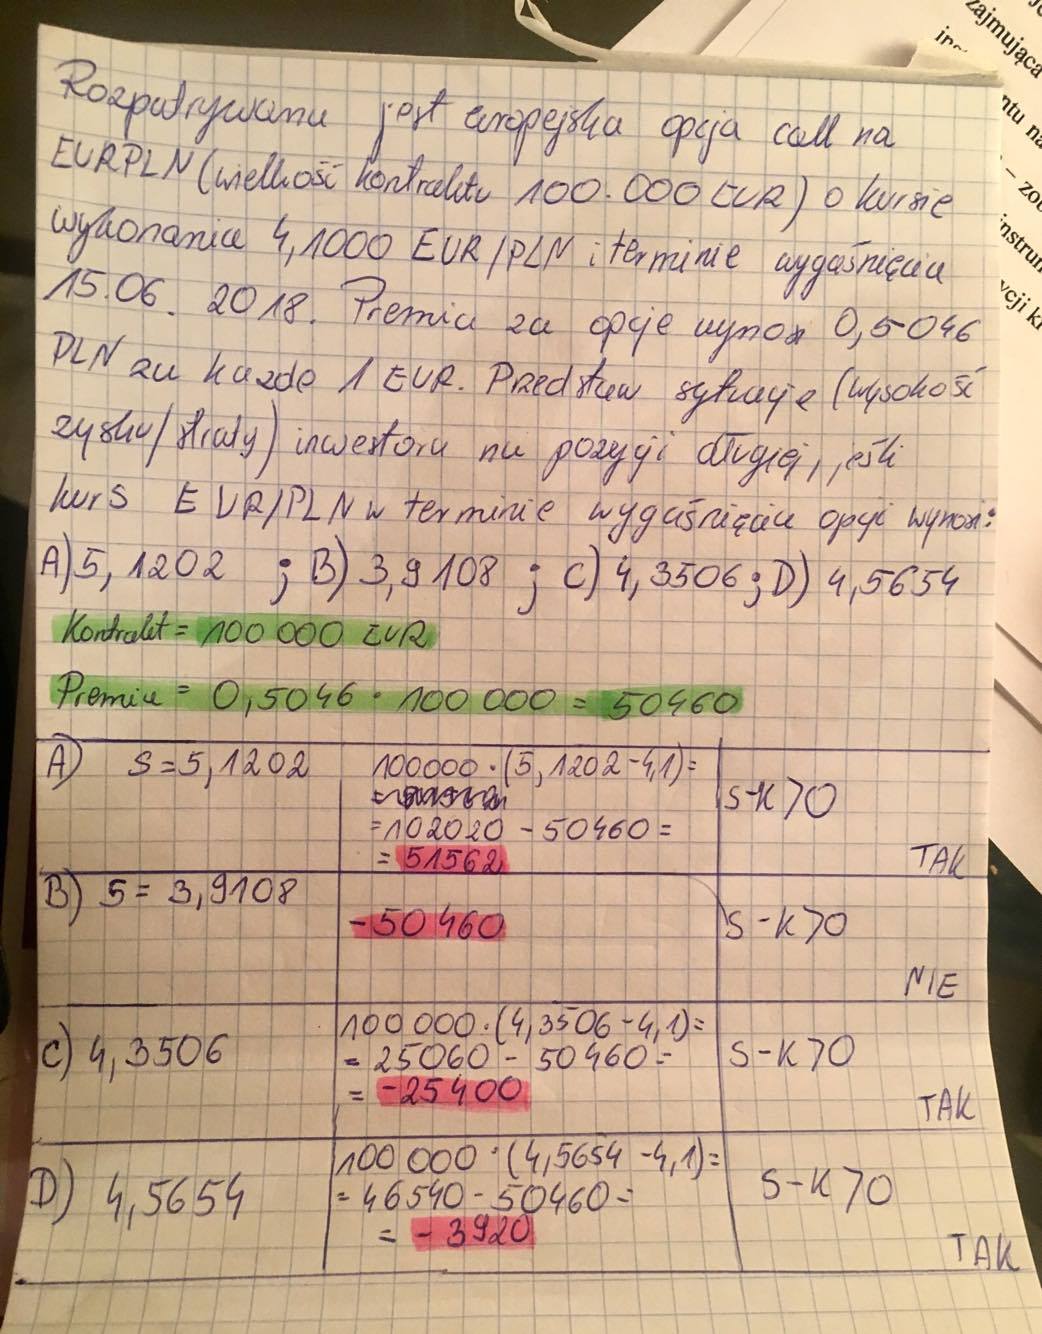 Rozpatrywana jest europejska opcja call na
EURPLN (wielkość kontraktu 100.000 EUR) o kursie
wykonania 4,1000 EUR/PLN i terminie wygaśnięcia
15.06. 2018. Premia za opcje wynosi 0,5046
PLN za każde 1 EUR. Przedstaw sytuację (wysokość
zysku/straty) inwestora na pozycji długiej, jeśli
kurs EUR/PLN w terminie wygaśnięcia opcji wynosi:
A) 5,1202 ; B) 3,9108 ; C) 4,3506 ; D) 4,5654
Kontrakt = 100 000 EUR
Premia = 0,5046 · 100 000 = 50460
A) S = 5,1202
100000 · (5,1202 - 4,1) =
= 102020 - 50460 =
= 51562
S-K>0
TAK
B) S = 3,9108
-50 460
S-K>0
NIE
C) 4,3506
100 000 · (4,3506 - 4,1) =
= 25060 - 50460 =
= -25400
S-K>0
TAK
D) 4,5654
100 000 · (4,5654 - 4,1) =
= 46540 - 50460 =
= - 3920
S-K>0
TAK
zajmująca
ntu na
– zob
instrum
ycji k